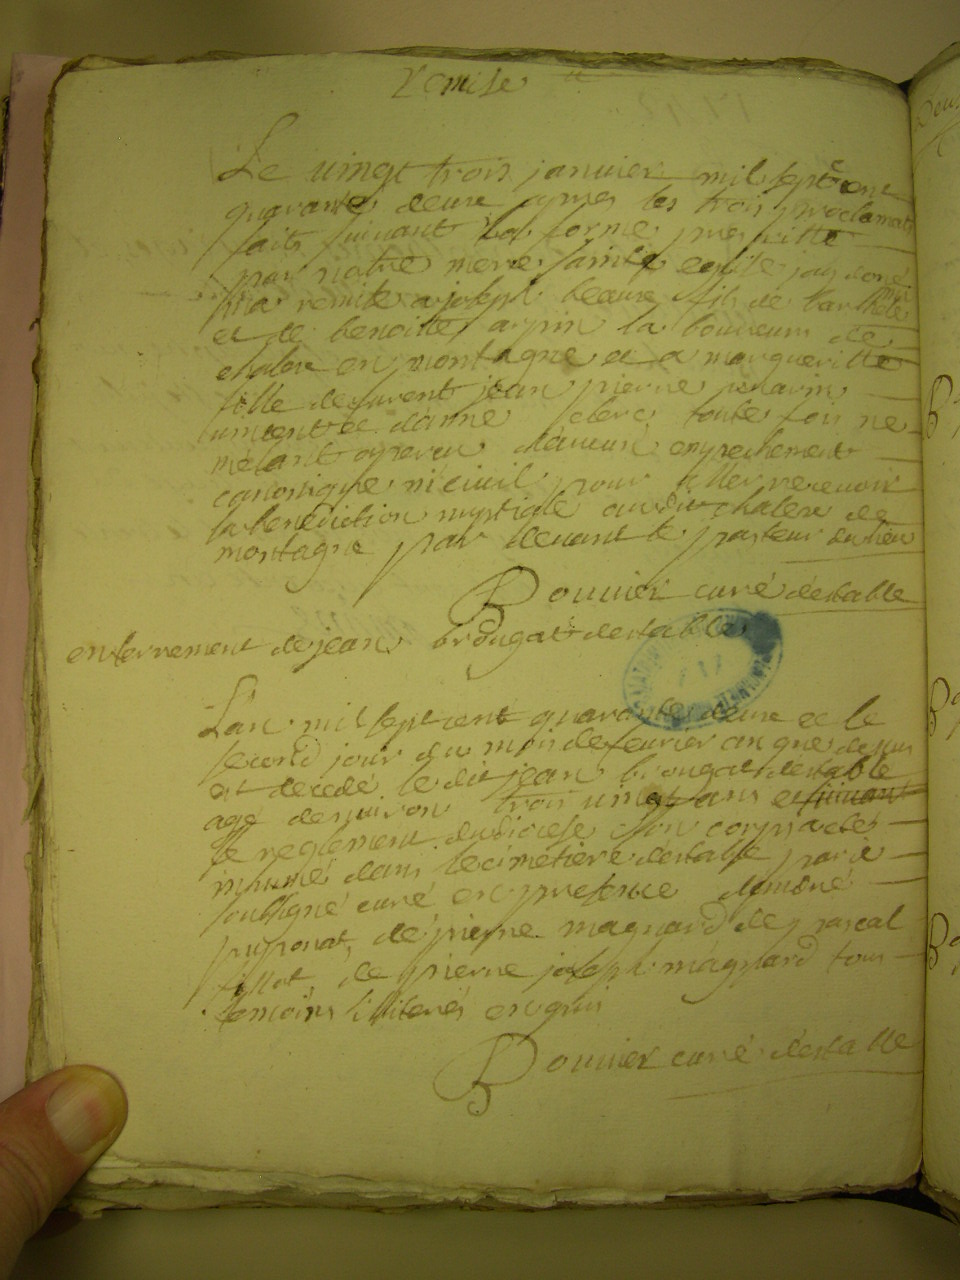 Remise
Le vingt trois janvier mil sept cent
quarante deux apres les trois proclamat
faits suivant la forme prescritte
par notre mere sainte eglise jay doné
ma remise a joseph beaux fils de barthele
et de benoitte arpin laboureurs de
chalex en montagne et a margueritte
fille de jean pierre
et danne clerc toute fois ne
métant aparru daucun empechement
canonique ni civil pour aller recevoir
la benediction nuptiale audit chalex de
montagne par devant le pasteur du lieu
Bouvier curé destable
enterrement de jean brougat destable
Lan mil sept cent quarante deux et le
second jour du mois de fevrier an que dessus
et decedé le dit jean brougat destable
agé denviron trois vingt ans et suivant
le reglement du diocese son corps a eté
inhumé dans le cimetiere destable par je
soussigné curé en presence
de pierre magnard de pascal
de pierre joseph magnard tous
temoins illiterés enquis
Bouvier curé destable